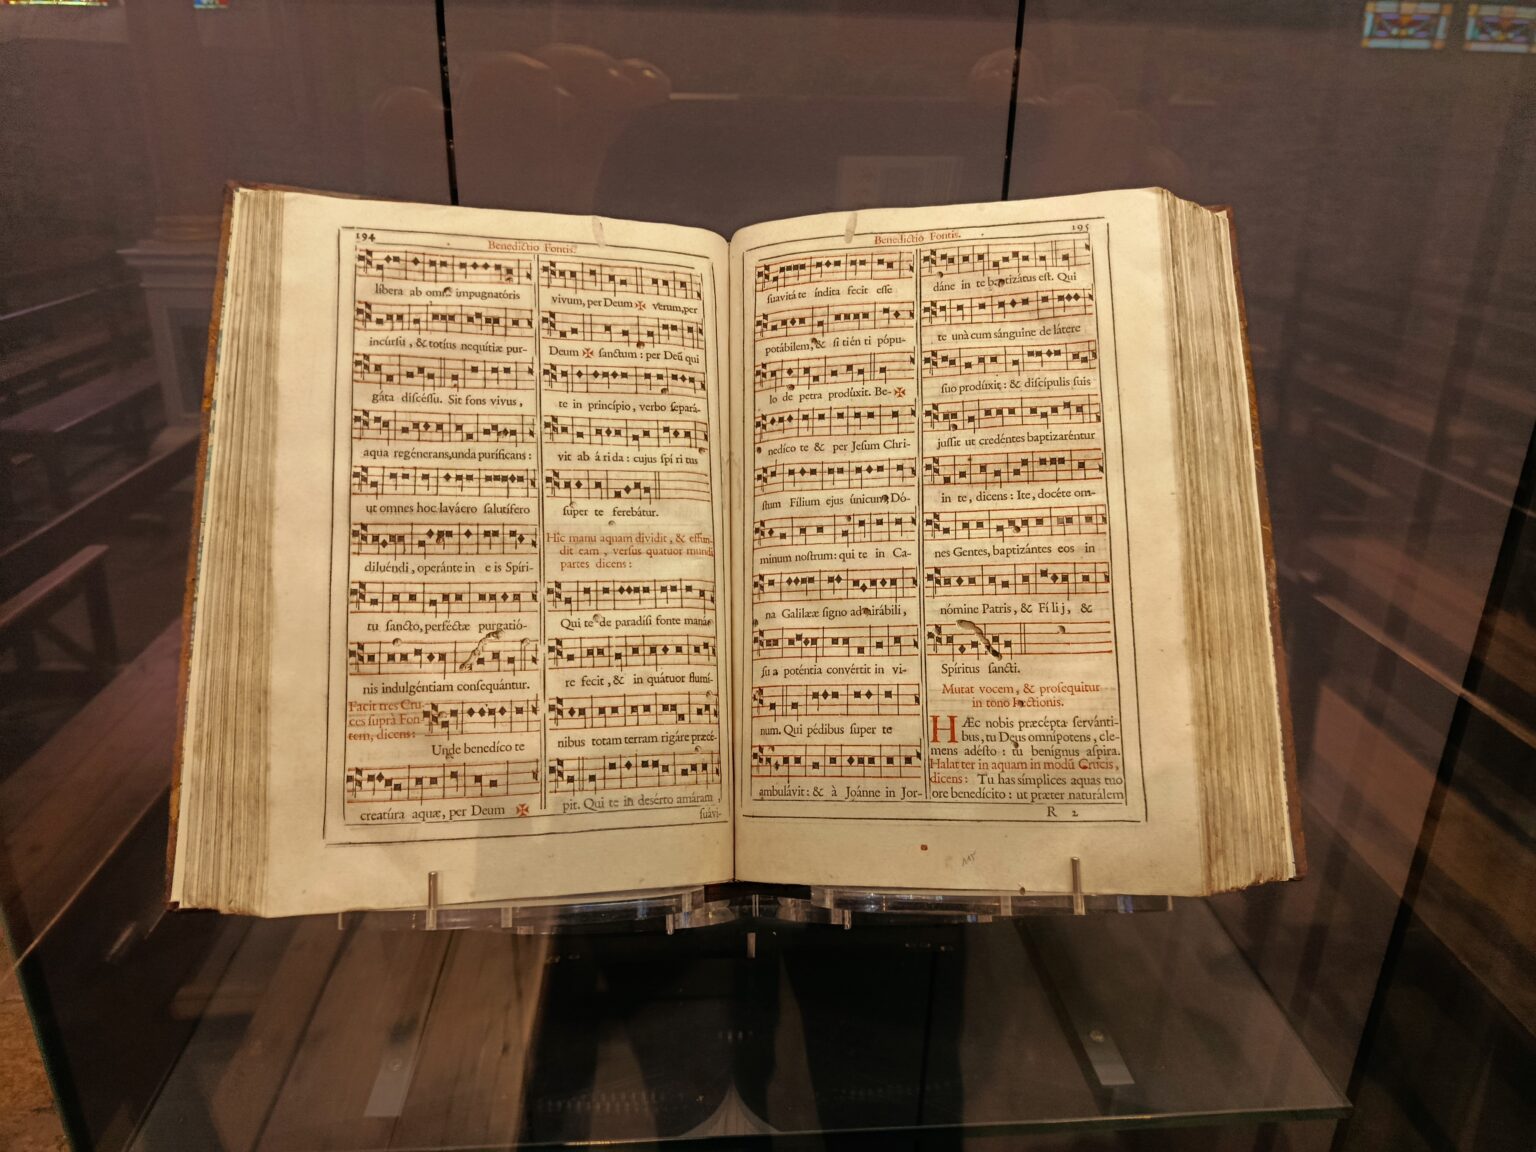 194
Benedictio Fontis.
líbera ab omni impugnatóris
incúrsu, & totíus nequítiæ pur-
gáta discéssu. Sit fons vivus,
aqua regénerans, unda puríficans:
ut omnes hoc lavácro salutífero
diluéndi, operánte in e is Spíri-
tu sancto, perféctæ purgatió-
nis indulgéntiam consequántur.
Facit tres Cru-
ces suprà Fon-
tem, dicens:
Unde benedíco te
creatúra aquæ, per Deum ✠
vivum, per Deum ✠ verum, per
Deum ✠ sanctum: per Deũ qui
te in princípio, verbo separá-
vit ab á ri da: cujus spí ri tus
super te ferebátur.
Hîc manu aquam dividit, & effun-
dit eam, versus quatuor mundi
partes dicens:
Qui te de paradísi fonte manáre
re fecit, & in quátuor flumí-
nibus totam terram rigáre præcé-
pit. Qui te in desérto amáram,
suávi-
195
Benedictio Fontis.
suavitá te índita fecit esse
potábilem, & si tién ti pópu-
lo de petra prodúxit. Be- ✠
nedíco te & per Jesum Chri-
stum Fílium ejus únicum, Dó-
minum nostrum: qui te in Ca-
na Galilææ signo admirábili,
su a poténtia convértit in vi-
num. Qui pédibus super te
ambulávit: & à Joánne in Jor-
dáne in te baptizátus est. Qui
te unà cum sánguine de látere
suo prodúxit: & discípulis suis
jussit ut credéntes baptizaréntur
in te, dicens: Ite, docéte om-
nes Gentes, baptizántes eos in
nómine Patris, & Fí li j, &
Spíritus sancti.
Mutat vocem, & prosequitur
in tono Lectionis.
HÆc nobis præcépta servánti-
bus, tu Deus omnípotens, cle-
mens adésto: tu benígnus aspíra.
Halat ter in aquam in modũ Crucis,
dicens: Tu has símplices aquas tuo
ore benedícito: ut præter naturálem
R 2